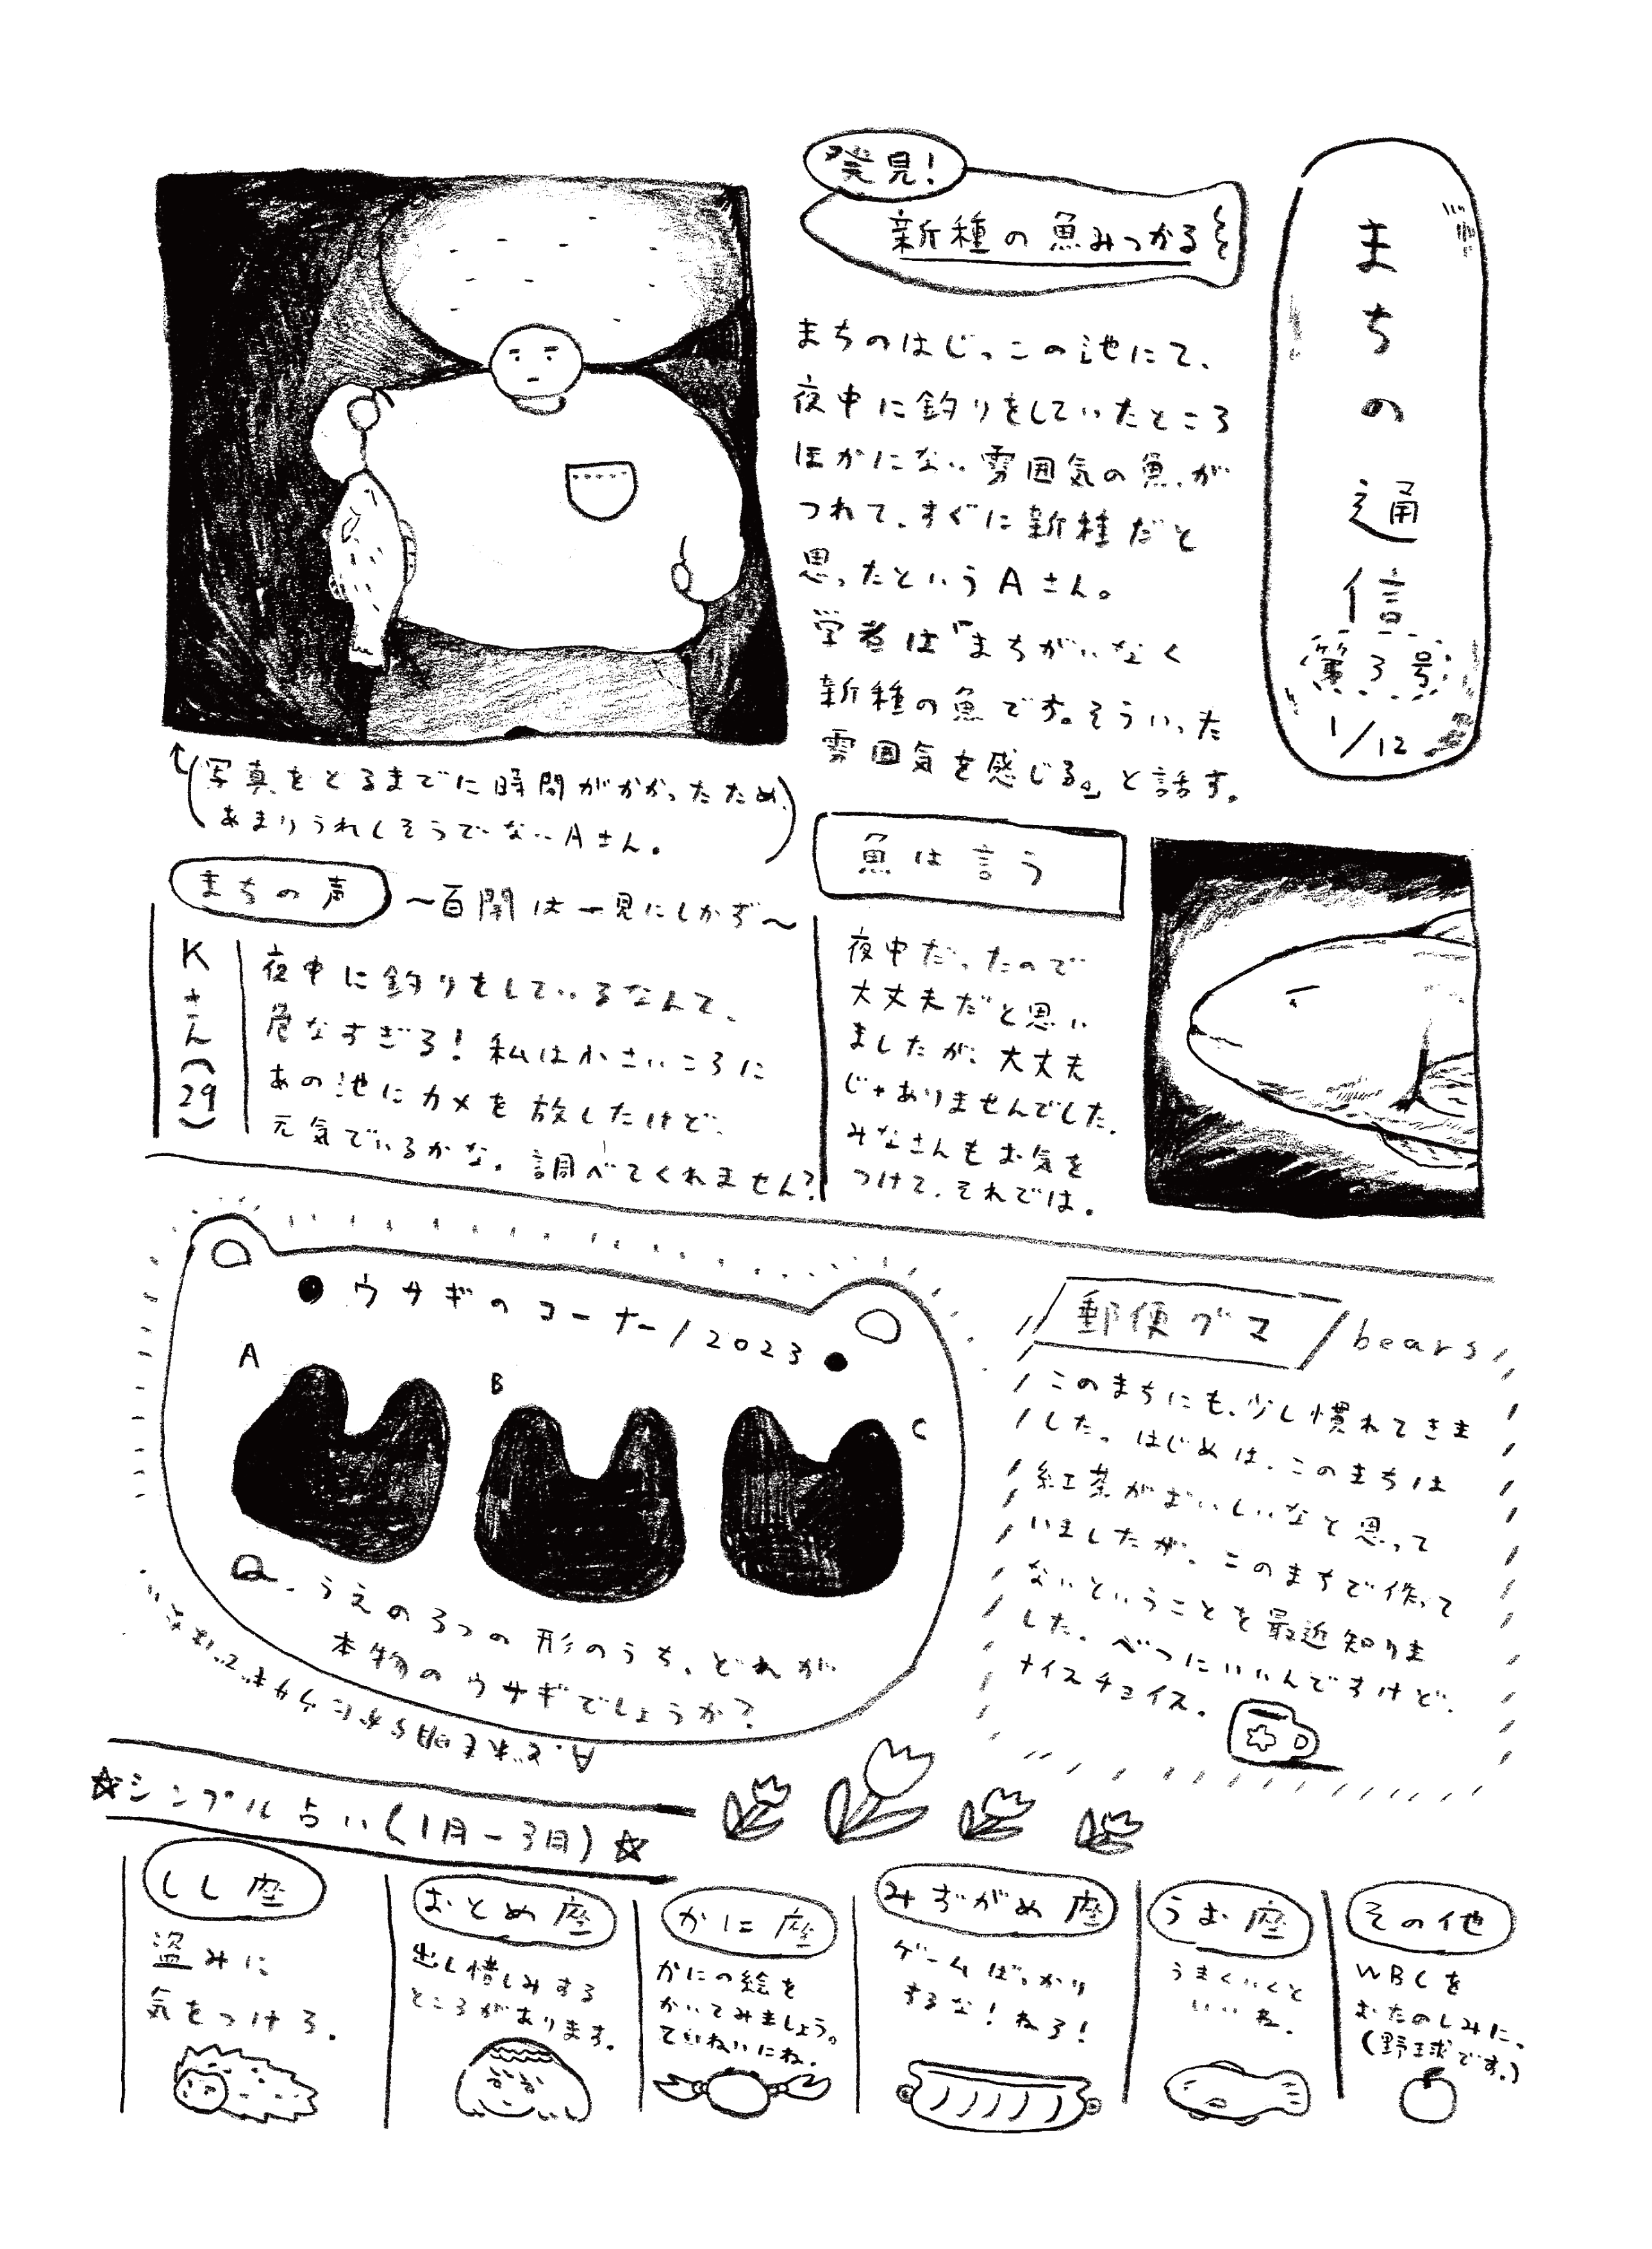 まちの通信
第3号
1/12
発見!
新種の魚みつかる
まちのはじっこの池にて、
夜中に釣りをしていたところ
ほかにない雰囲気の魚が
つれて、すぐに新種だと
思ったというAさん。
学者は「まちがいなく
新種の魚です。そういった
雰囲気を感じる。」と話す。
(写真をとるまでに時間がかかったため、
あまりうれしそうでないAさん。)
魚は言う
夜中だったので
大丈夫だと思い
ましたが、大丈夫
じゃありませんでした。
みなさんもお気を
つけて、それでは。
まちの声
〜百聞は一見にしかず〜
Kさん(29)
夜中に釣りをしているなんて、
危なすぎる!私は小さいころに
あの池にカメを放したけど、
元気でいるかな。調べてくれません?
●ウサギのコーナー/2023●
A
B
C
Q.うえの3つの形のうち、どれが
本物のウサギでしょうか?
郵便グマ/bears
このまちにも、少し慣れてきま
した。はじめは、このまちは
紅茶がおいしいなと思って
いましたが、このまちで作って
ないということを最近知りま
した。べつにいいんですけど、
ナイスチョイス。
☆シンプル占い(1月-3月)☆
しし座
盗みに
気をつけろ。
おとめ座
出し惜しみする
ところがあります。
かに座
かにの絵を
かいてみましょう。
ていねいにね。
みずがめ座
ゲームばっかり
するな!ねろ!
うお座
うまくいくと
いいね。
その他
WBCを
おたのしみに。
(野球です。)